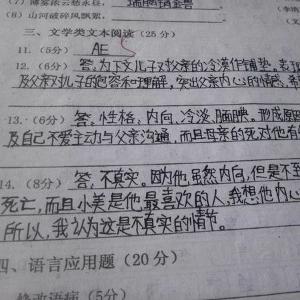 (7) 薄雾浓云愁永昼, 瑞脑销金兽
(8) 山河破碎风飘絮,
三、文学类文本阅读(25分)
11. (5分) AE
12. (6分) 答,为下文儿子对父亲的冷漠作铺垫。表现
及父亲对儿子的包容和理解,突出父亲内心的情感,希
13. (6分) 答,性格,内向、冷淡、腼腆,形成原因
及自己不爱主动与父亲沟通,而且母亲的死对他有
14. (8分) 答,不真实。因为他虽然内向,但是不至
死亡,而且小美是他最喜欢的人,我想他内心
所以,我认为这是不真实的情节。
四、语言应用题(20分)
修改语病(5分)